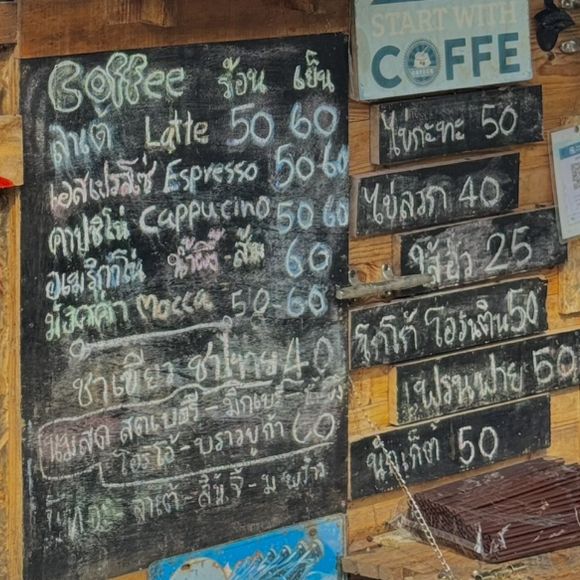 Coffee ร้อน เย็น
ลาเต้ Latte 50 60
เอสเปรสโซ่ Espresso 50 60
คาปูชิโน่ Cappucino 50 60
อเมริกาโน่ น้ำผึ้ง-ส้ม 60
มอคค่า Mocca 50-60
ชาเขียว ชาไทย 40
นมสด สตเบอรี่-มิกเบอรี่
โอริโอ้-บราวชูก้า 60
ลาเต้-ลิ้นจี่-มะพร้าว
START WITH
COFFE
ไข่กะทะ 50
ไข่ลวก 40
25
โกโก้ โอวันติน 50
เฟรนฟาย 50
นักเก็ต 50